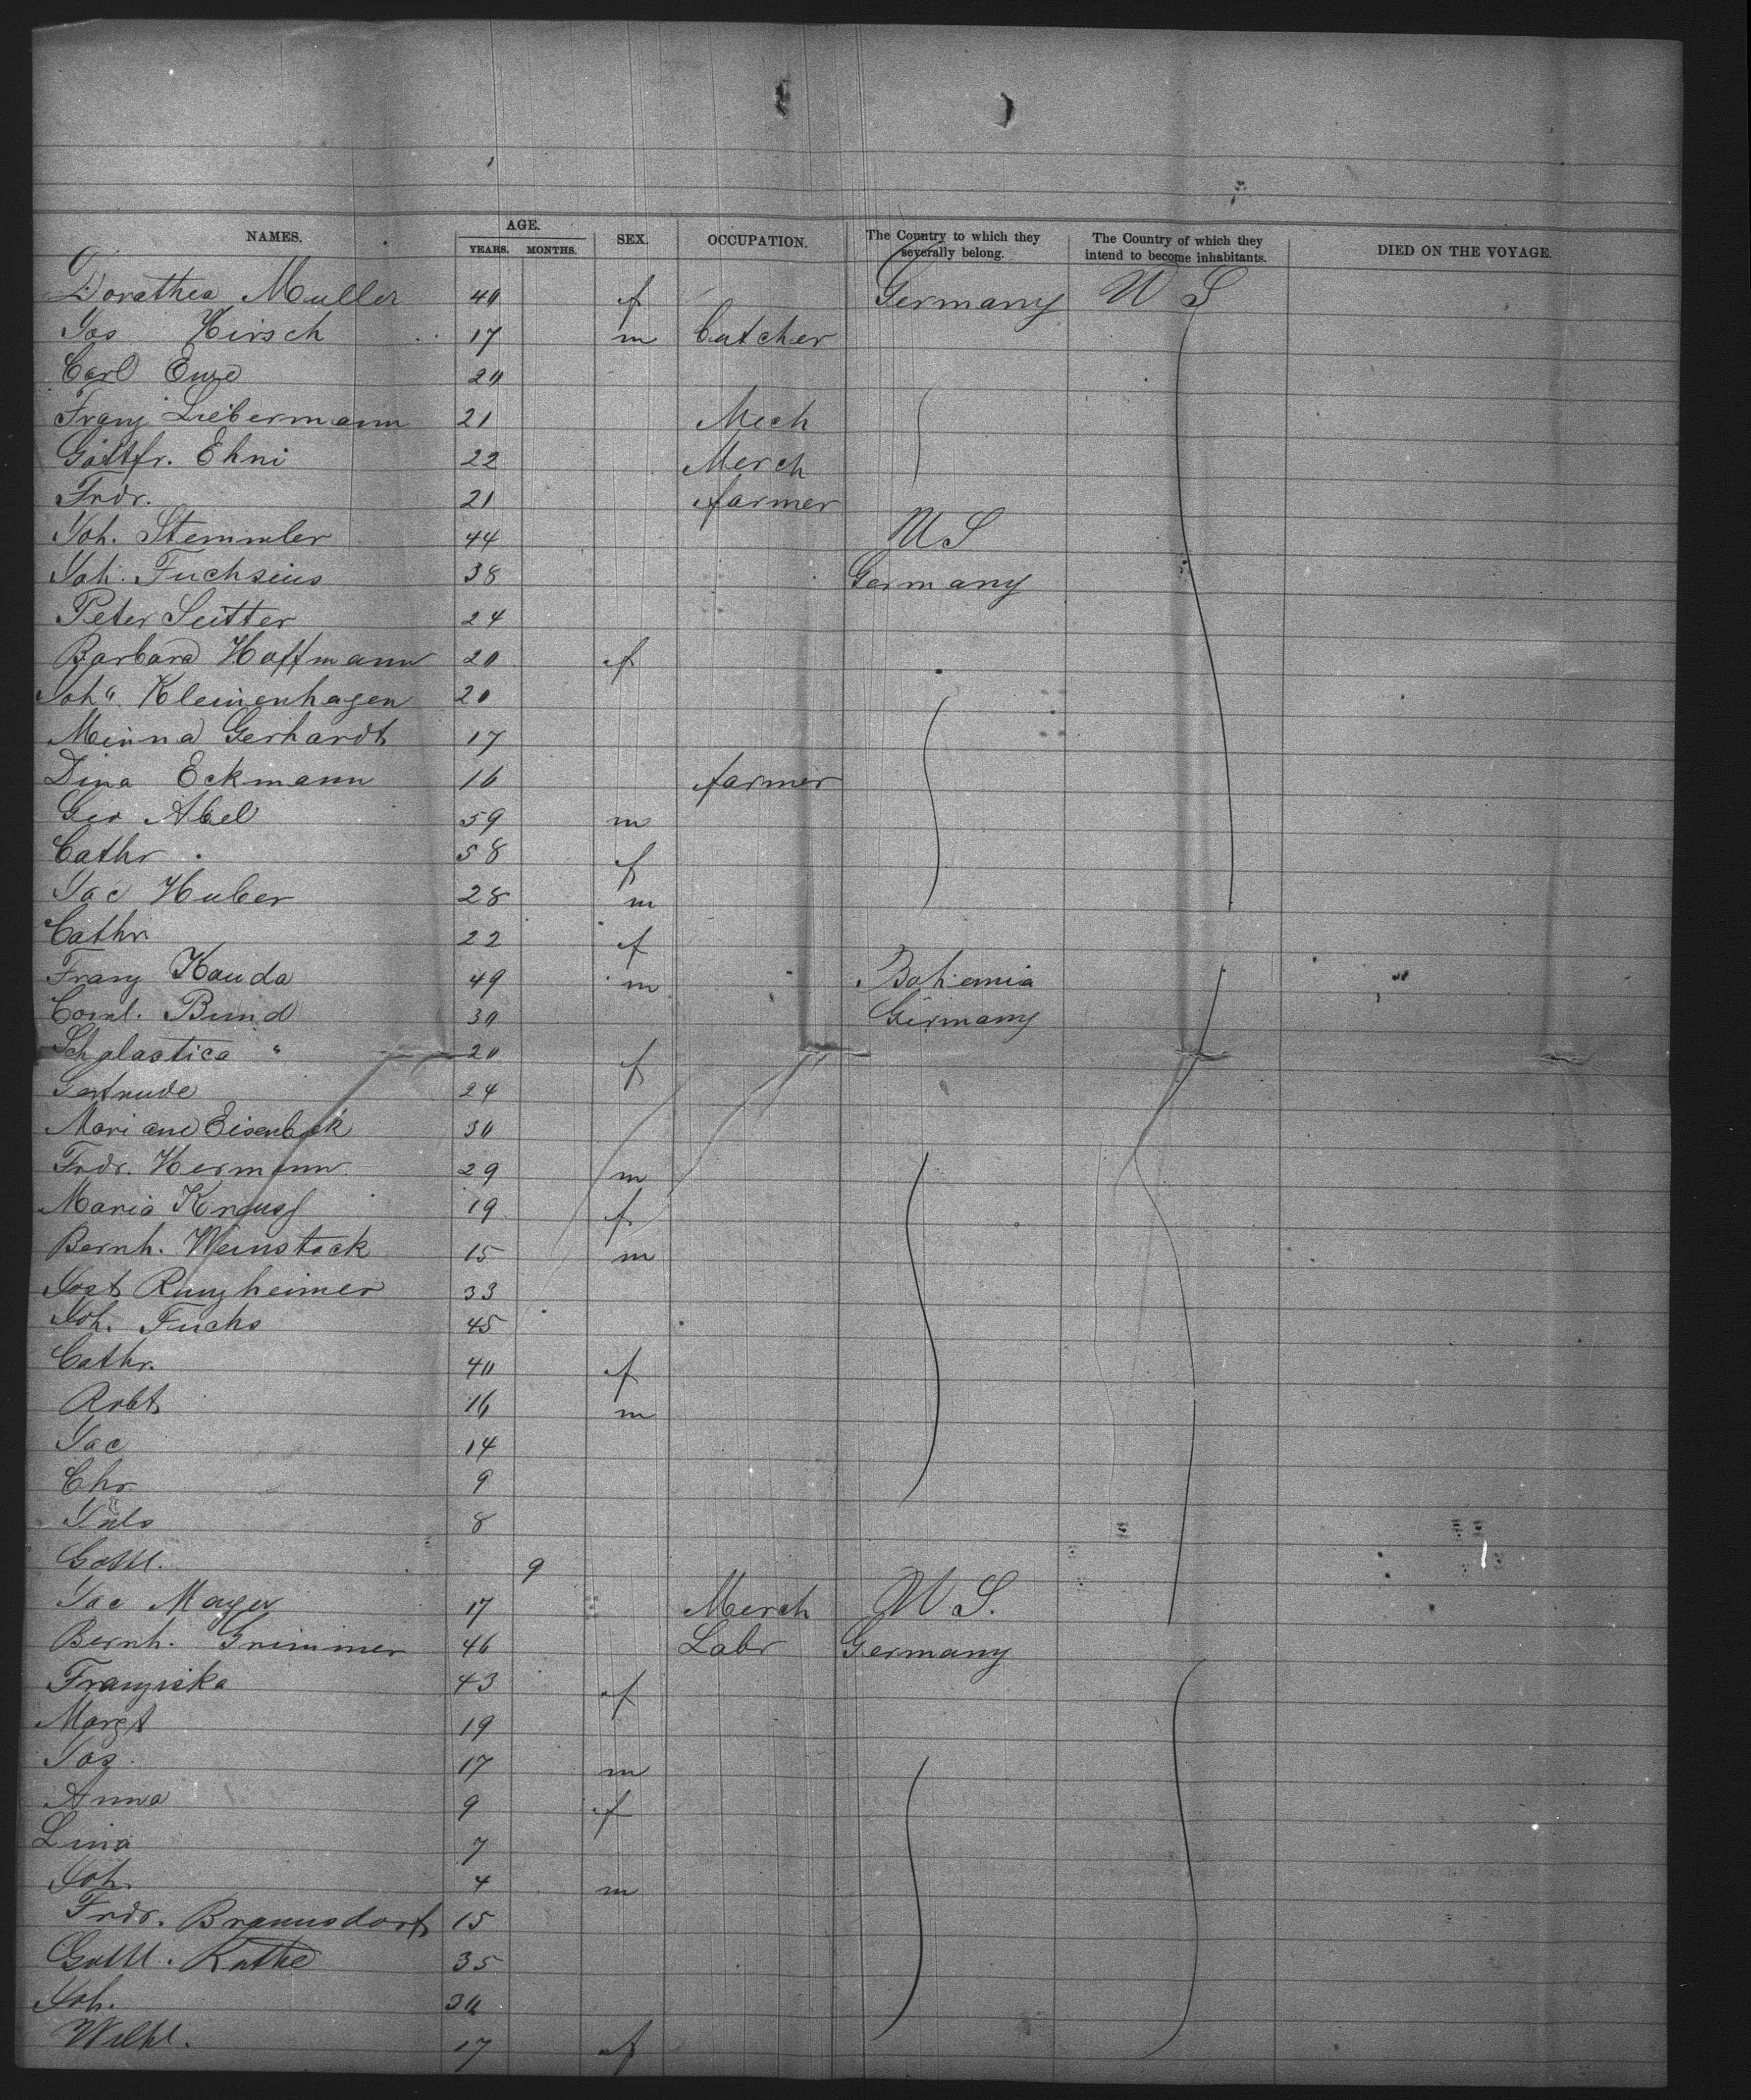 NAMES. AGE. YEARS. MONTHS. SEX. OCCUPATION. The Country to which they severally belong. The Country of which they intend to become inhabitants. DIED ON THE VOYAGE.
Dorathea Muller 40 f Germany U S
Jos Hirsch 17 m butcher
Carl 20
Franz Liebermann 21 Mech
Gottfr. Ehni 22 Merch
Frdr. 21 farmer
Joh. Stemmler 44 U S
Joh. Fuchsius 38 Germany
Peter Seitter 24
Barbara Hoffmann 20 f
Joh" Kleinenhagen 20
Minna Gerhardt 17
Dina Eckmann 16 farmer
Geo Abel 59 m
Cathr " 58 f
Jac Huber 28 m
Cathr 22 f
Franz Kouda 49 m Bohemia
Cornl. Bund 30 Germany
Scholastica " 20 f
Gertrude 24
Mariane Eisenbeck 30
Frdr. Hermann 29 m
Maria Krauss 19 f
Bernh. Weinstock 15 m
Jost Runzheimer 33
Joh. Fuchs 45
Cathr. 40 f
Robt 16 m
Jac 14
Chr 9
Juls 8
Gottl. 9
Jac Mayer 17 Merch U S.
Bernh. Grimmer 46 Labr Germany
Franziska 43 f
Margt 19
Jos. 17 m
Anna 9 f
Lina 7
Joh. 4 m
Frdr. Braunsdorf 15
Gottl. Kothe 35
Joh. 30
Wilhl. 17 f